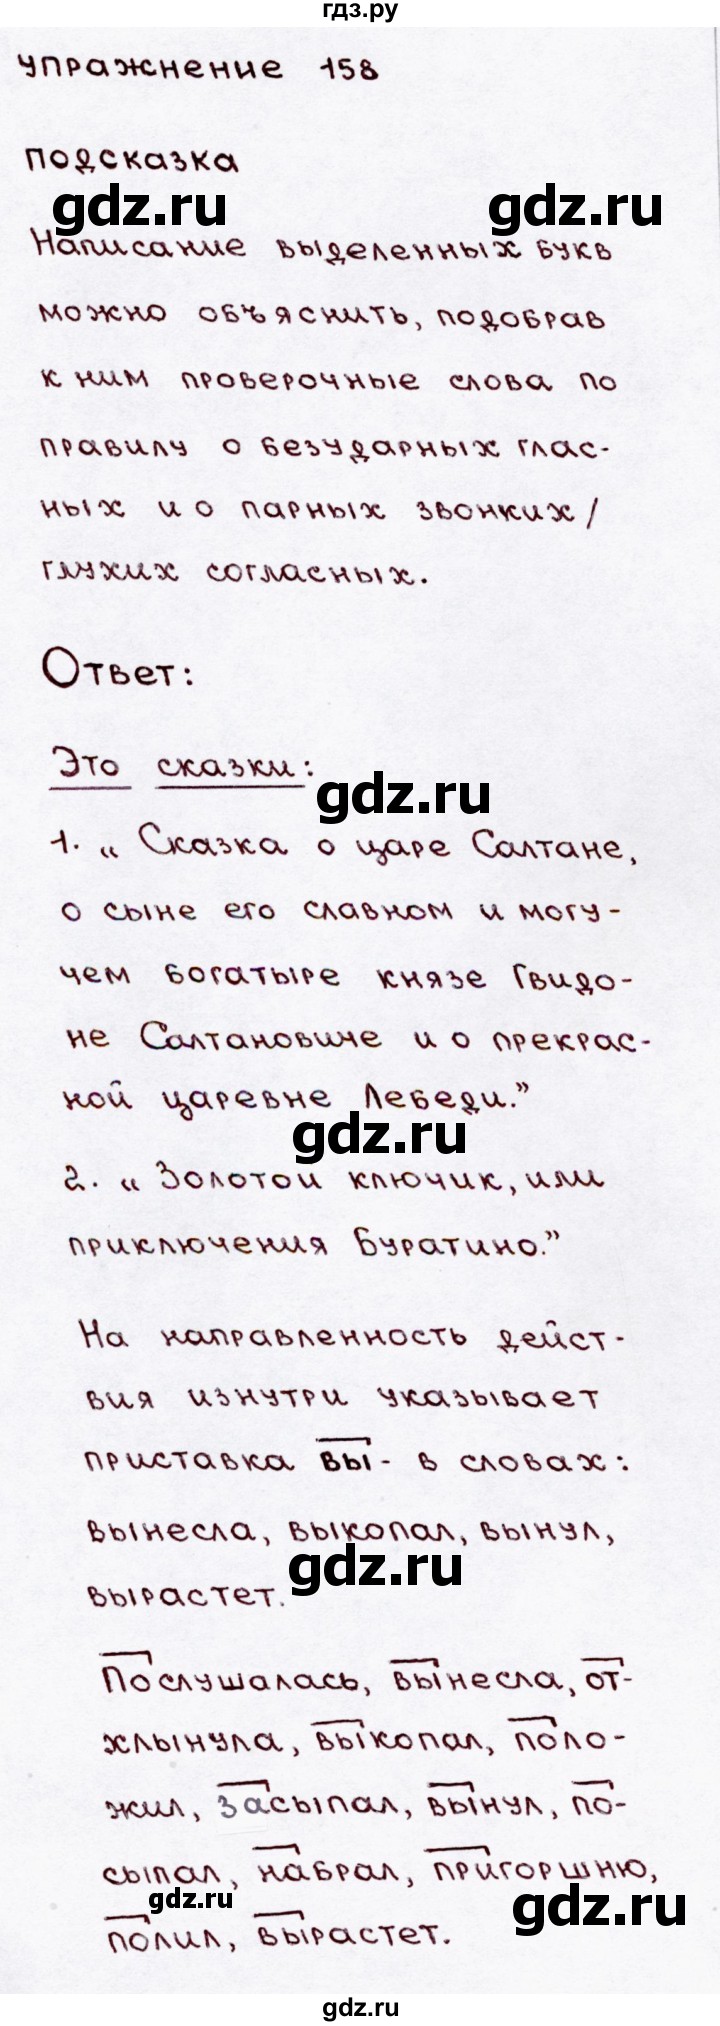 гдз.ру
упражнение 158
подсказка
gdz.ru gdz.ru
Написание выделенных букв
можно объяснить, подобрав
к ним проверочные слова по
правилу о безударных глас-
ных и о парных звонких/
глухих согласных.
Ответ:
Это сказки:
gdz.ru
1. „ Сказка о царе Салтане,
о сыне его славном и могу-
чем богатыре князе Гвидо-
не Салтановиче и о прекрас-
ной царевне Лебеди.”
gdz.ru
2. „ Золотой ключик, или
приключения Буратино.”
На направленность дейст-
вия изнутри указывает
приставка вы- в словах:
вынесла, выкопал, вынул,
gdz.ru
вырастет.
Послушалась, вынесла, от-
хлынула, выкопал, поло-
жил, засыпал, вынул, по-
сыпал, набрал, пригоршню,
gdz.ru gdz.ru
полил, вырастет.
gdz.ru